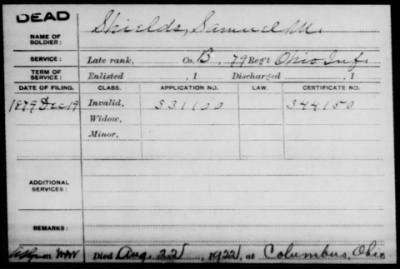 DEAD
NAME OF SOLDIER: Shields, Samuel M.
SERVICE: Late rank, Co. B, 79 Reg't Ohio Inf.
TERM OF SERVICE: Enlisted , 1 Discharged , 1
DATE OF FILING. CLASS. APPLICATION NO. LAW. CERTIFICATE NO.
1879 Dec 19 Invalid, 331100 344150
Widow,
Minor,
ADDITIONAL SERVICES:
REMARKS:
Died Aug. 22, 1922, at Columbus, Ohio.